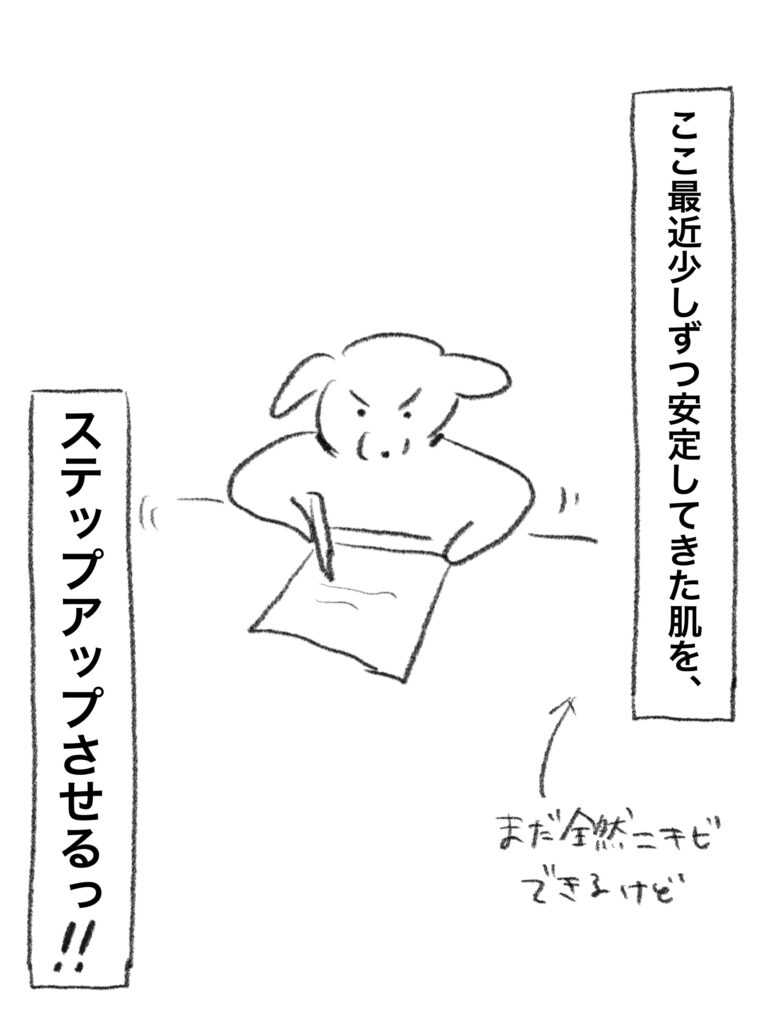 ここ最近少しずつ安定してきた肌を、
ステップアップさせるっ!!
まだ全然ニキビ
できるけど